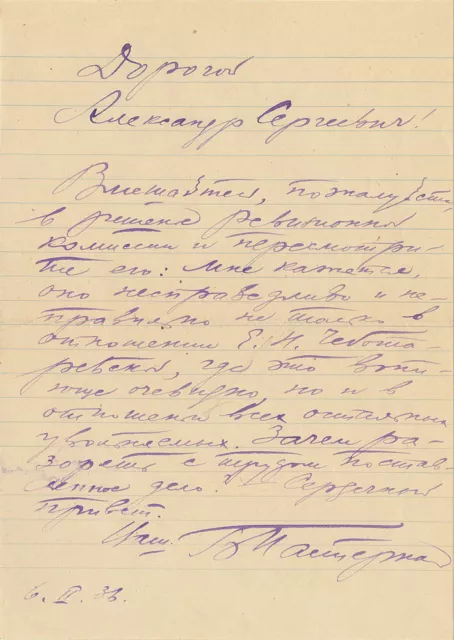 Дорогой
Александр Сергеевич!
Вмешайтесь, пожалуйста,
в решение ревизионной
комиссии и пересмотри-
те его: Мне кажется,
оно несправедливо и не-
правильно не только в
отношении Е. Н. Чебота-
ревской, где это вопи-
юще очевидно, но и в
отношении всех остальных
уволенных. Зачем ра-
зорять с трудом постав-
ленное дело? Сердечный
привет.
Б Пастернак
6. II. 36.